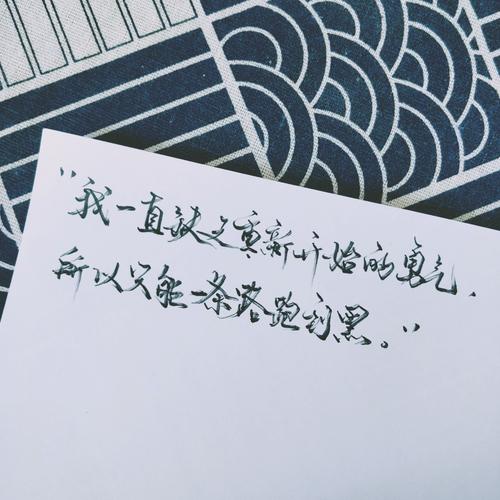 "我一直缺乏重新开始的勇气,
所以只能一条路跑到黑。"